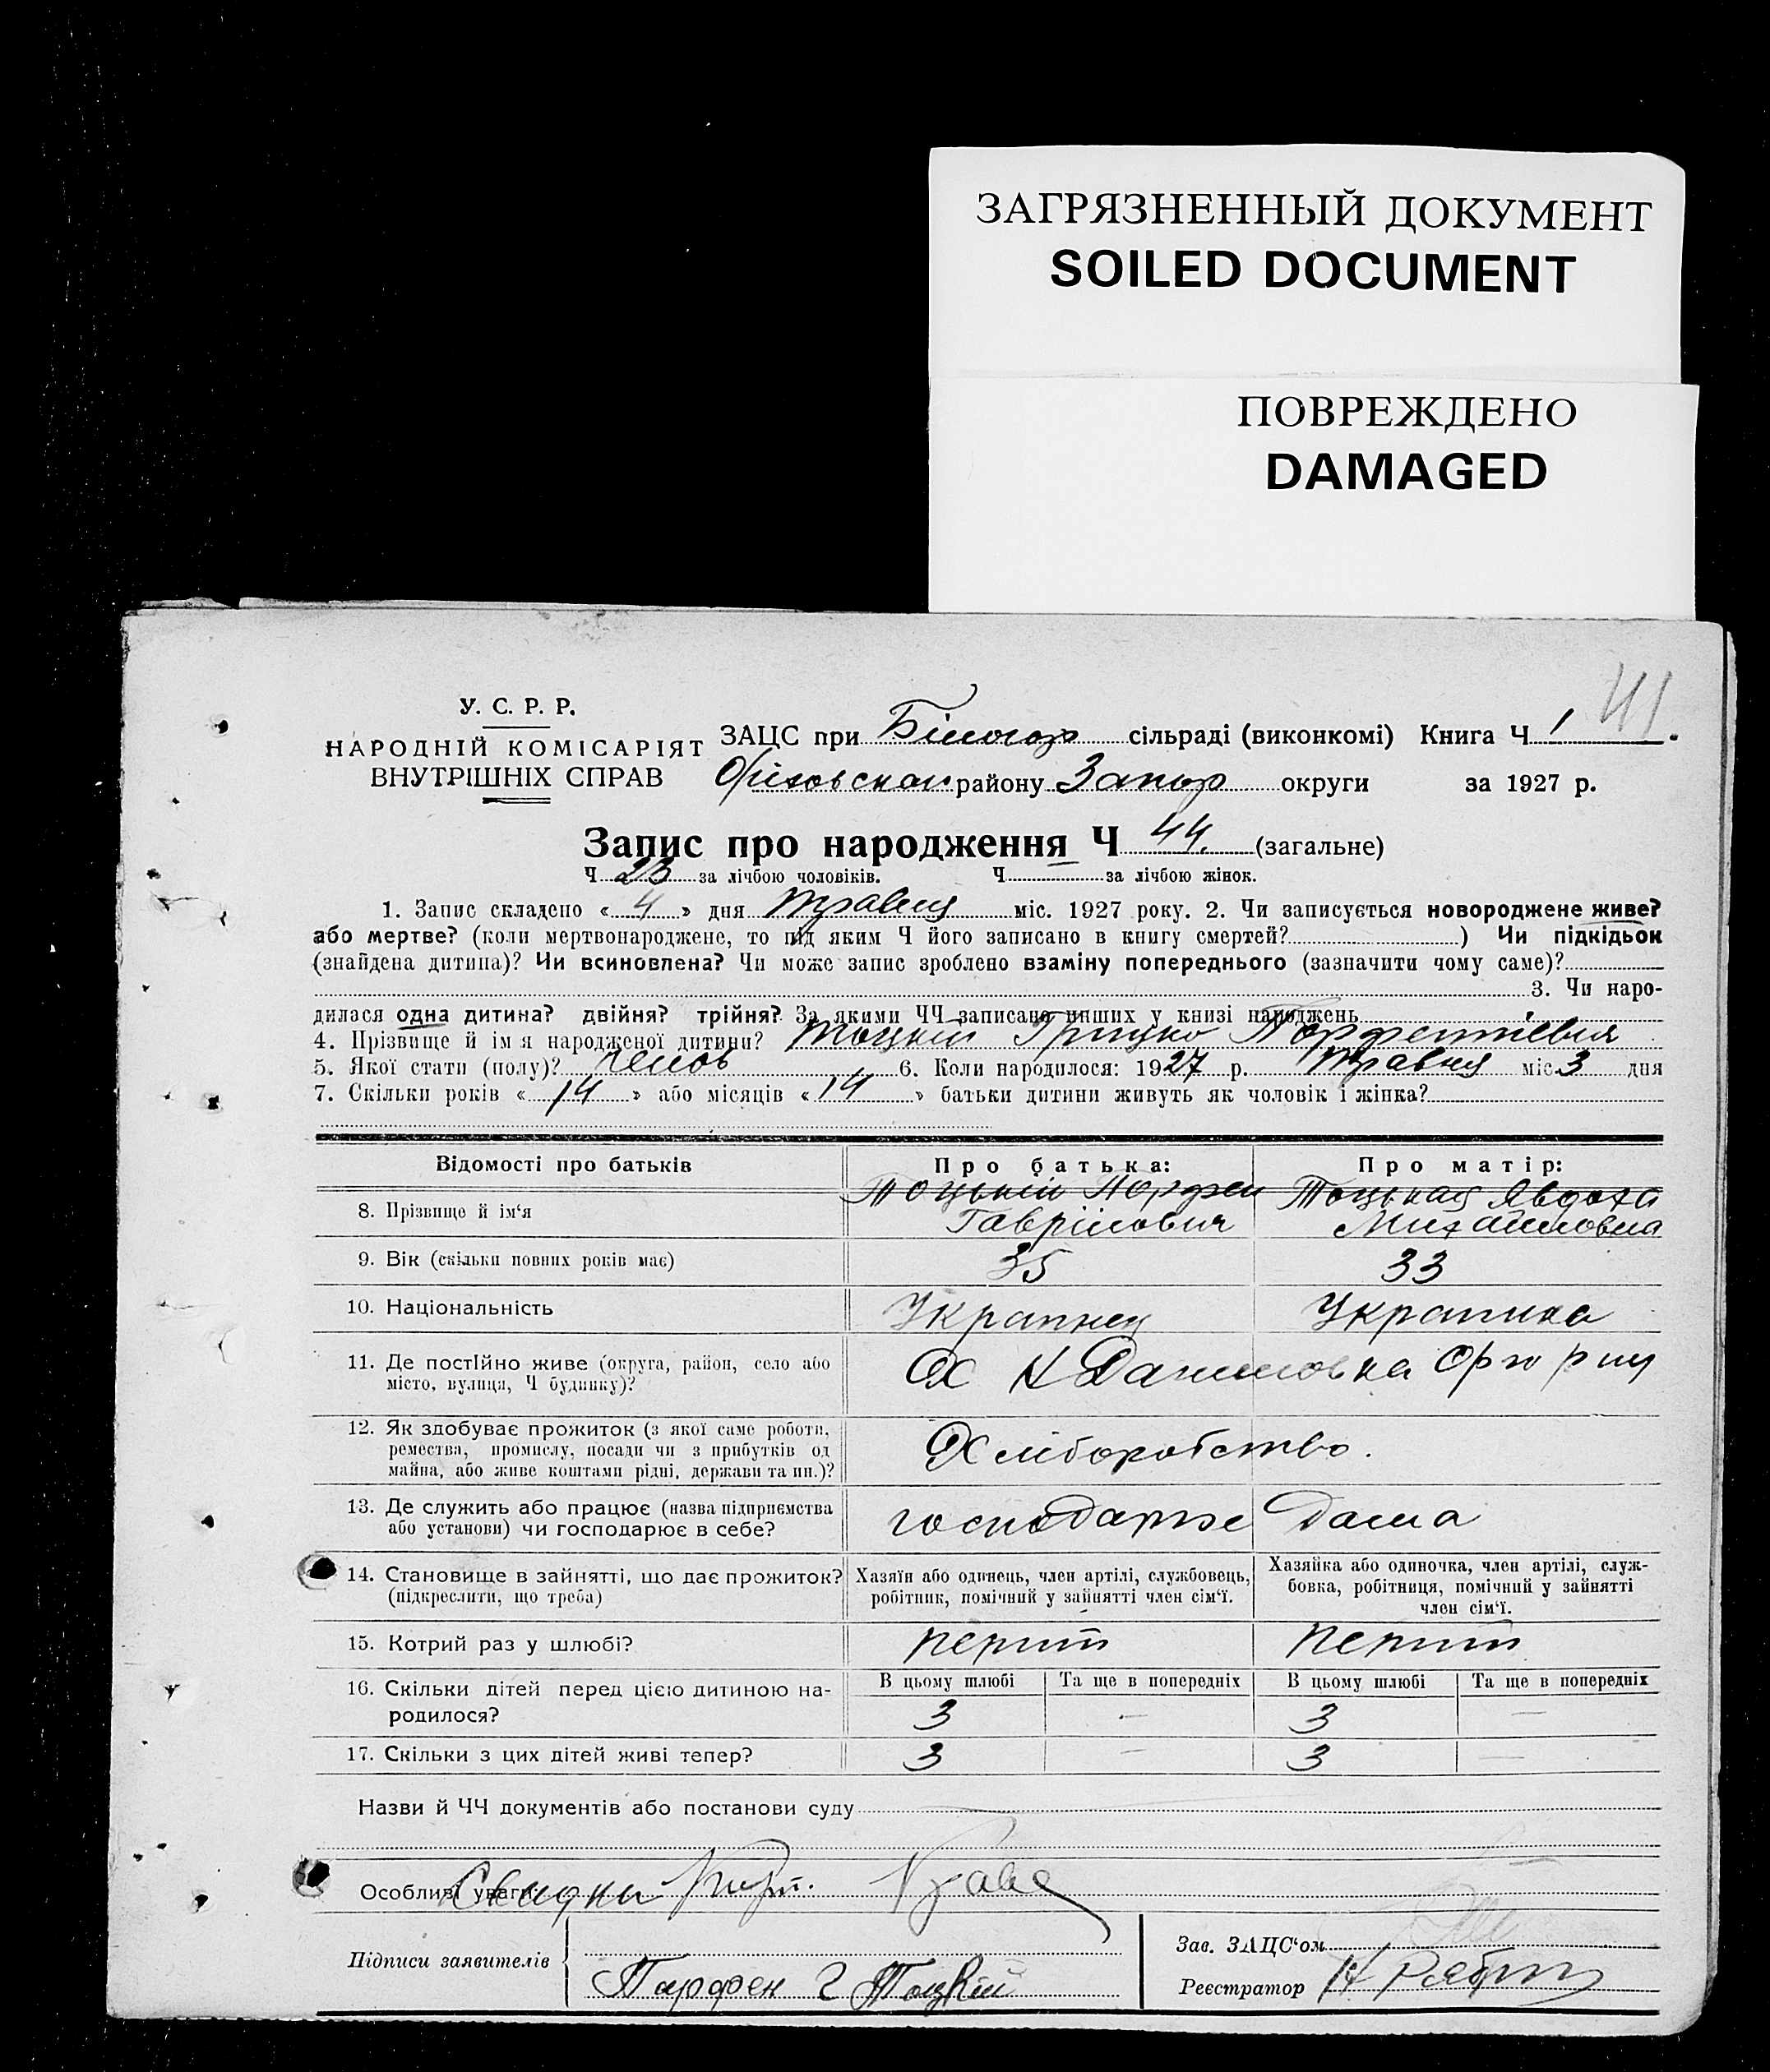 ЗАГРЯЗНЕННЫЙ ДОКУМЕНТ
SOILED DOCUMENT
ПОВРЕЖДЕНО
DAMAGED
41
У. С. Р. Р.
НАРОДНІЙ КОМІСАРІЯТ
ВНУТРІШНІХ СПРАВ
ЗАЦС при Білогор сільраді (виконкомі) Книга Ч 1
району Запор округи за 1927 р.
Запис про народження Ч 44. (загальне)
Ч 23 за лічбою чоловіків. Ч за лічбою жінок.
1. Запис складено « 4 » дня травня міс. 1927 року. 2. Чи записується новороджене живе?
або мертве? (коли мертвонароджене, то під яким Ч його записано в книгу смертей? ) Чи підкідьок
(знайдена дитина)? Чи всиновлена? Чи може запис зроблено взаміну попереднього (зазначити чому саме)?
3. Чи наро-
дилася одна дитина? двійня? трійня? За якими ЧЧ записано инших у книзі народжень
4. Прізвище й ім'я народженої дитини? Тоцкій Грицко Порфентіевич
5. Якої стати (полу)? челов 6. Коли народилося: 1927 р. травня міс. 3 дня
7. Скільки років « 14 » або місяців « 14 » батьки дитини живуть як чоловік і жінка?
Відомості про батьків Про батька: Про матір:
8. Прізвище й ім'я Тоцький Порфен Тоцькая Явдоха
Гаврілович Михайловна
9. Вік (скільки повних років має) 35 33
10. Національність Украінец Украінка
11. Де постійно живе (округа, район, село або
місто, вулиця, Ч будинку)? Даниловка
12. Як здобуває прожиток (з якої саме роботи,
ремества, промислу, посади чи з прибутків од
майна, або живе коштами рідні, держави та ин.)? Хліборобство.
13. Де служить або працює (назва підприємства
або установи) чи господарює в себе? господарює дома
14. Становище в зайнятті, що дає прожиток?
(підкреслити, що треба)
Хазяїн або одинець, член артілі, службовець,
робітник, помічний у зайнятті член сім'ї.
Хазяйка або одиночка, член артілі, служ-
бовка, робітниця, помічний у зайнятті
член сім'ї.
15. Котрий раз у шлюбі? перший перший
16. Скільки дітей перед цією дитиною на-
родилося?
В цьому шлюбі Та ще в попередніх В цьому шлюбі Та ще в попередніх
3 — 3 —
17. Скільки з цих дітей живі тепер? 3 — 3 —
Назви й ЧЧ документів або постанови суду
Особливі уваги:
Підписи заявителів
Парфен Г Тоцкій
Зав. ЗАЦС'ом
Реєстратор